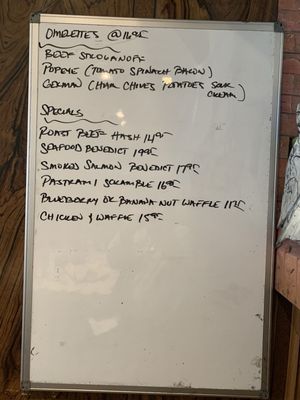 OMELETTES @ 16.95
BEEF STROGANOFF
POPEYE (TOMATO SPINACH BACON)
GERMAN (HAM CHIVES POTATOES SOUR
CREAM)
SPECIALS
ROAST BEEF HASH 14.95
SEAFOOD BENEDICT 19.95
SMOKED SALMON BENEDICT 17.95
PASTRAMI SCRAMBLE 16.95
BLUEBERRY OR BANANA NUT WAFFLE
CHICKEN & WAFFLE 15.95